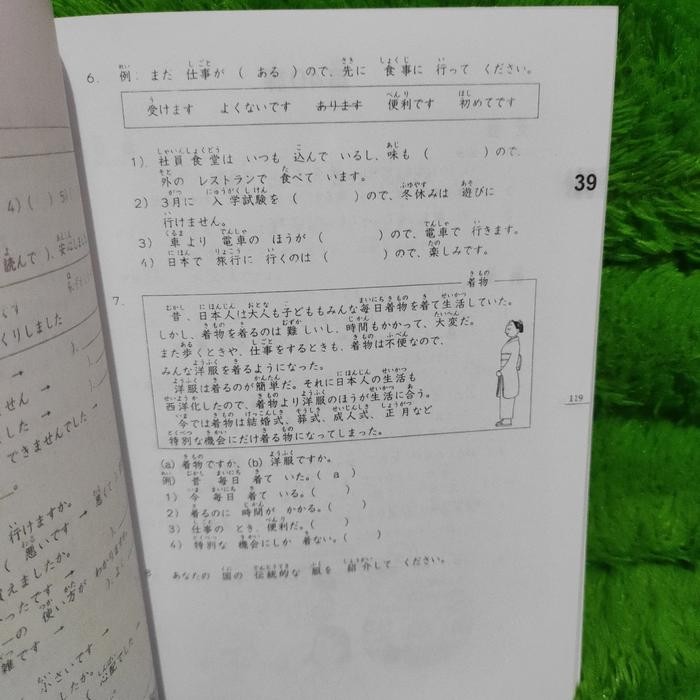 6. 例：まだ 仕事が （ ある ）ので、先に 食事に 行って ください。
受けます よくないです あります 便利です 初めてです
1） 社員食堂は いつも 込んで いるし、味も （ ）ので、
外の レストランで 食べて います。
2） 3月に 入学試験を （ ）ので、冬休みは 遊びに
行けません。
3） 車より 電車の ほうが （ ）ので、電車で 行きます。
4） 日本で 旅行に 行くのは （ ）ので、楽しみです。
39
7.
着物
昔、日本人は大人も子どももみんな毎日着物を着て生活していた。
しかし、着物を着るのは難しいし、時間もかかって、大変だ。
また歩くときや、仕事をするときも、着物は不便なので、
みんな洋服を着るようになった。
洋服は着るのが簡単だ。それに日本人の生活も
西洋化したので、着物より洋服のほうが生活に合う。
今では着物は結婚式、葬式、成人式、正月など
特別な機会にだけ着る物になってしまった。
119
(a) 着物ですか、(b) 洋服ですか。
例） 昔 毎日 着て いた。（ a ）
1） 今 毎日 着て いる。（ ）
2） 着るのに 時間が かかる。（ ）
3） 仕事の とき、便利だ。（ ）
4） 特別な 機会にしか 着ない。（ ）
あなたの 国の 伝統的な 服を 紹介して ください。
4）（ ） 5）
読んで）、安心しました
くりしました
せん →
した →
できませんでした →
行けますか。
悪いです →
えましたか。
ったです →
の 使い方が わかりません
雑です →
さいです →
したか。 心配でした